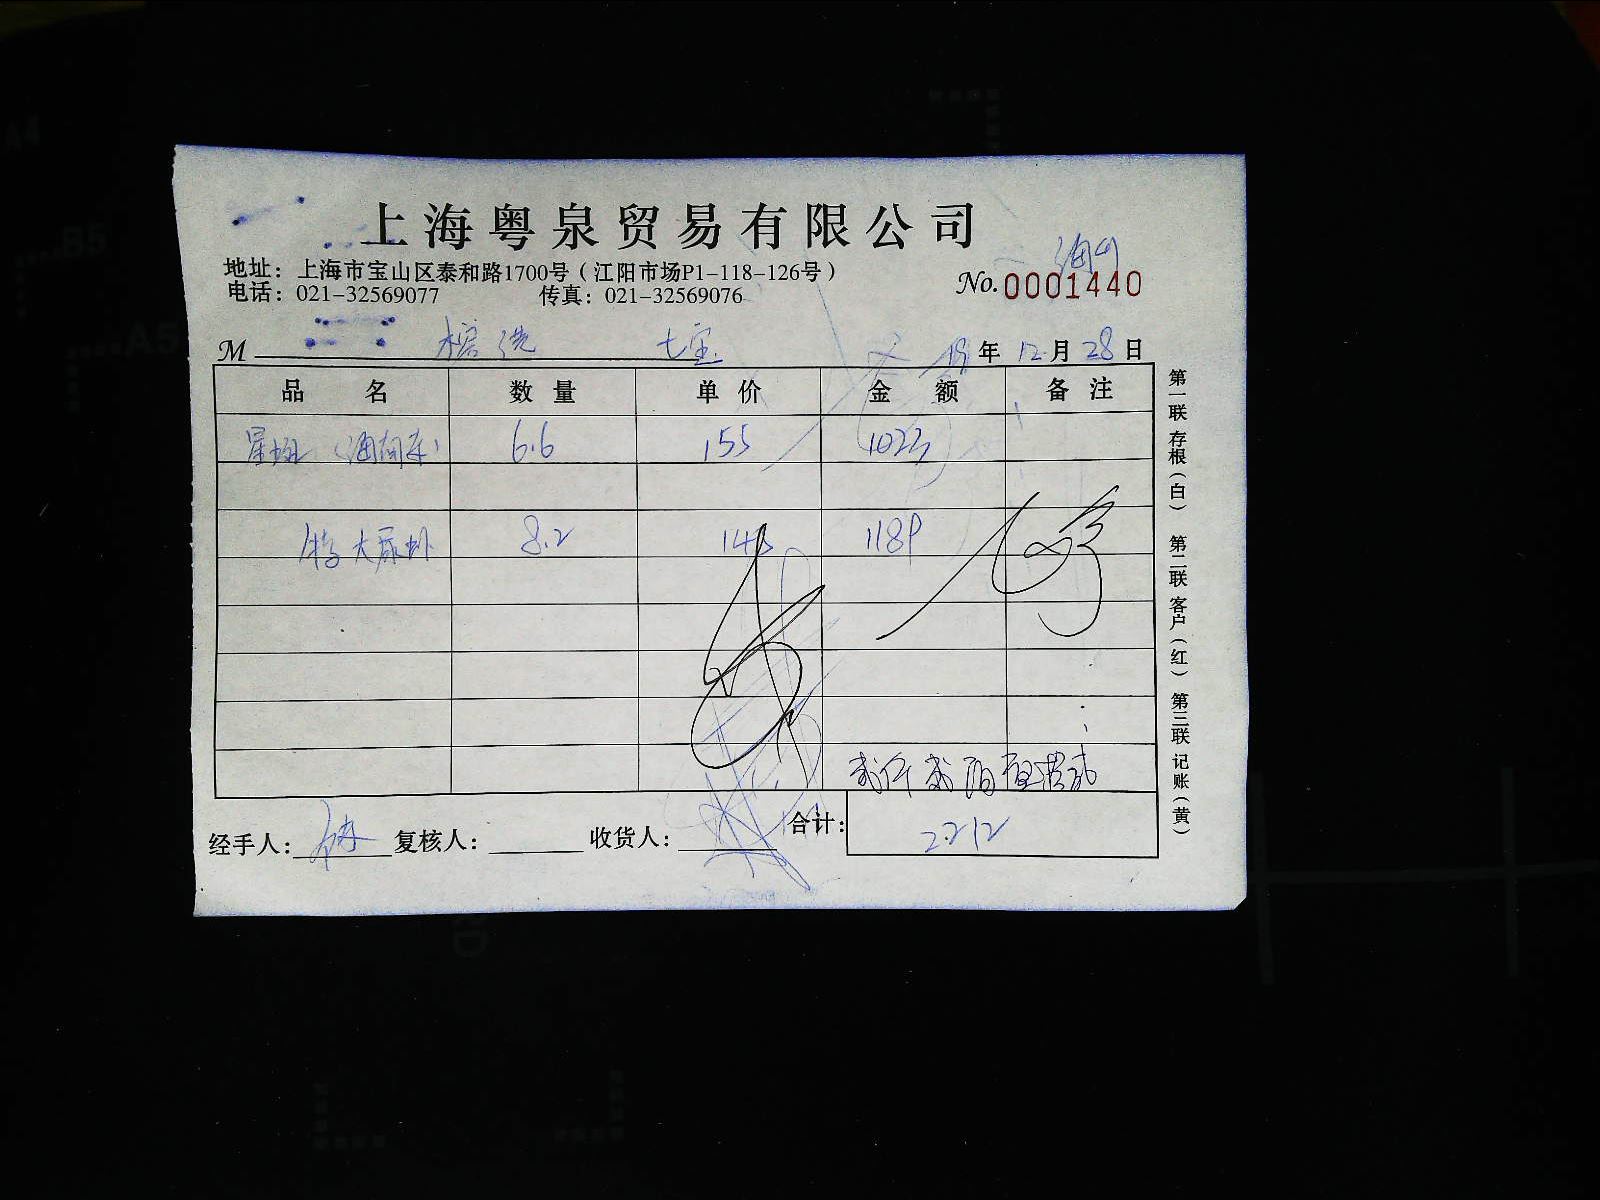 上海粤泉贸易有限公司
地址：上海市宝山区泰和路1700号（江阳市场P1-118-126号）
电话：021-32569077 传真：021-32569076
No.0001440
M 七宝 19年12月28日
品名 数量 单价 金额 备注
星斑 6.6 155 1023
特大尿虾 8.2 145 1189
贰仟贰佰壹拾贰
经手人： 复核人： 收货人： 合计： 2212
第一联存根（白） 第二联客户（红） 第三联记账（黄）